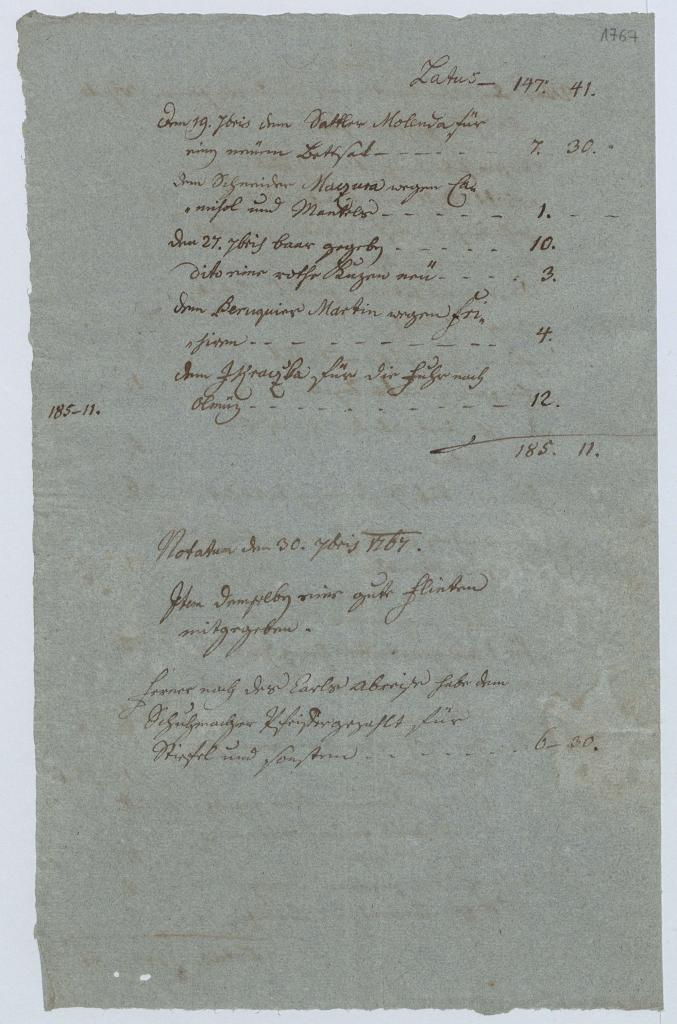 1767
Latus — 147. 41.
Den 19. 7bris dem Sattler Molenda für
einen neüen Bettsak — — — — 7. 30.
dem Schneider Mazura wegen Ca-
misol und Mantels — — — — 1. — —
den 27. 7bris baar gegeben — — — — 10.
dito eine rothe Kuzen neü — — — 3.
dem Peruquier Martin wegen Fri-
siren — — — — — — — 4.
dem für die Fuhr nach
Olmüz — — — — — — — 12.
185–11.
185. 11.
Notatum den 30. 7bris 1767.
Item demselben eine gute Flinten
mitgegeben.
Ferner nach des Carls Abreise habe dem
Schuhmacher gezahlt für
Stiefel und sonsten — — — — 6– 30.